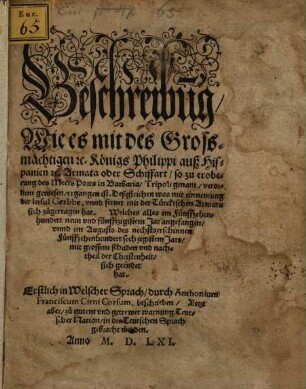 Eur.
65
Beschreibūg /
Wie es mit des Groß-
mächtigen ꝛc. Königs Philippi auß His-
panien ꝛc. Armata oder Schiffart / so zu erobe-
rung des Meers Ports in Barbaria / Tripoli genant / verord-
net gewesen / ergangen ist. Deßgleichen was mit einnemung
der Insul Gerbe, vnnd ferner mit der Türckischen Armata
sich zugetragen hat. Welches alles im Fünffzehen-
hundert neun vnd fünffzigistem Jar angefangen /
vnnd im Augusto des nechstuerschienen
Fünffzehenhundert sechzigistem Jars /
mit grossem schaden vnd nach-
theil der Christenheit /
sich geendet
hat.
Erstlich in Welscher Sprach / durch Anthonium
Franciscum Cirni Corsum, beschriben / Yetzt
aber / zu gutem vnd getrewer warnung Teut-
scher Nation / in die Teutschen Sprach
gebracht worden.
Anno M. D. LXI.